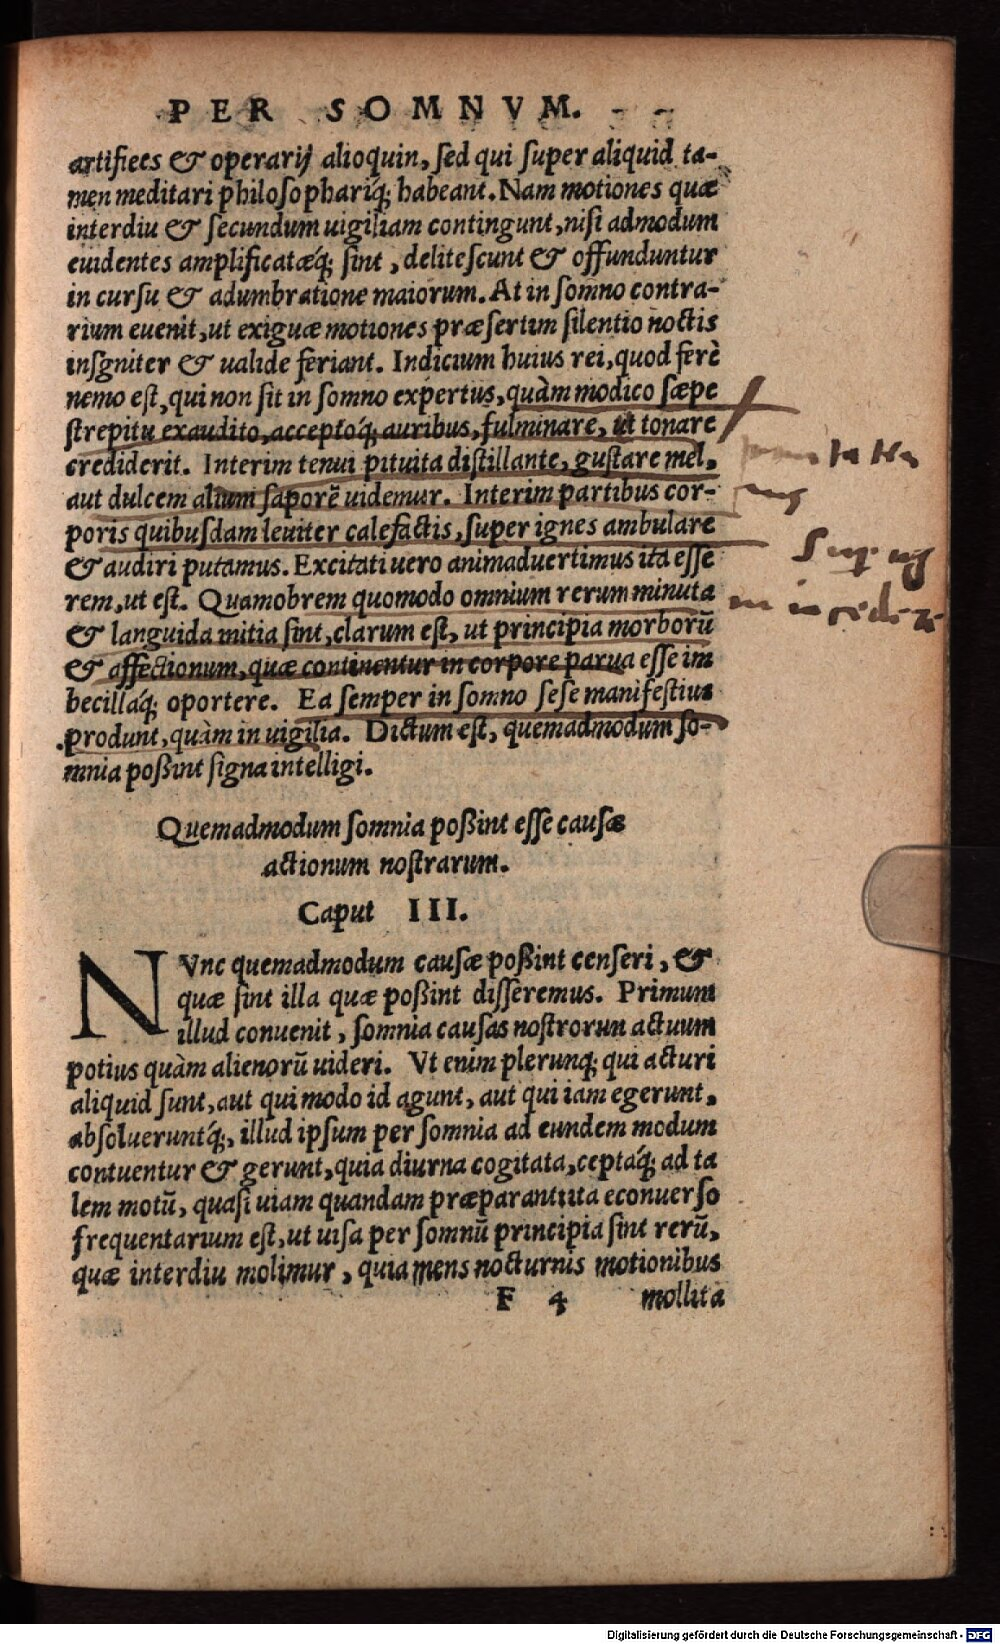 PER SOMNVM.
artifices & operarij alioquin, sed qui super aliquid ta-
men meditari philosophariq́; habeant. Nam motiones quæ
interdiu & secundum uigiliam contingunt, nisi admodum
euidentes amplificatæq́; sint, delitescunt & offunduntur
in cursu & adumbratione maiorum. At in somno contra-
rium euenit, ut exiguæ motiones præsertim silentio noctis
insgniter & valide feriant. Indicium huius rei, quod ferè
nemo est, qui non sit in somno expertus, quàm modico sæpe
strepitu exaudito, acceptoq́; auribus, fulminare, ut tonare
crediderit. Interim tenui pituita distillante, gustare mel,
aut dulcem alium saporẽ uidemur. Interim partibus cor-
poris quibusdam leuiter calefactis, super ignes ambulare
& audiri putamus. Excitati uero animaduertimus ita esse
rem, ut est. Quamobrem quomodo omnium rerum minuta
& languida initia sint, clarum est, ut principia morborũ
& affectionum, quæ continentur in corpore parua esse im
becillaq́; oportere. Ea semper in somno sese manifestius
produnt, quàm in uigilia. Dictum est, quemadmodum so-
mnia poßint signa intelligi.
Quemadmodum somnia poßint esse causæ
actionum nostrarum.
Caput III.
NVnc quemadmodum causæ poßint censeri, &
quæ sint illa quæ poßint disseremus. Primum
illud conuenit, somnia causas nostrorun actuum
potius quàm alienorũ uideri. Vt enim plerunq; qui acturi
aliquid sunt, aut qui modo id agunt, aut qui iam egerunt,
absolueruntq́;, illud ipsum per somnia ad eundem modum
contuentur & gerunt, quia diurna cogitata, ceptaq́; ad ta
lem motũ, quasi uiam quandam præparant: ita econuerso
frequentarium est, ut uisa per somnũ principia sint rerũ,
quæ interdiu molimur, quia mens nocturnis motionibus
F 4 mollita
Digitalisierung gefördert durch die Deutsche Forschungsgemeinschaft - DFG